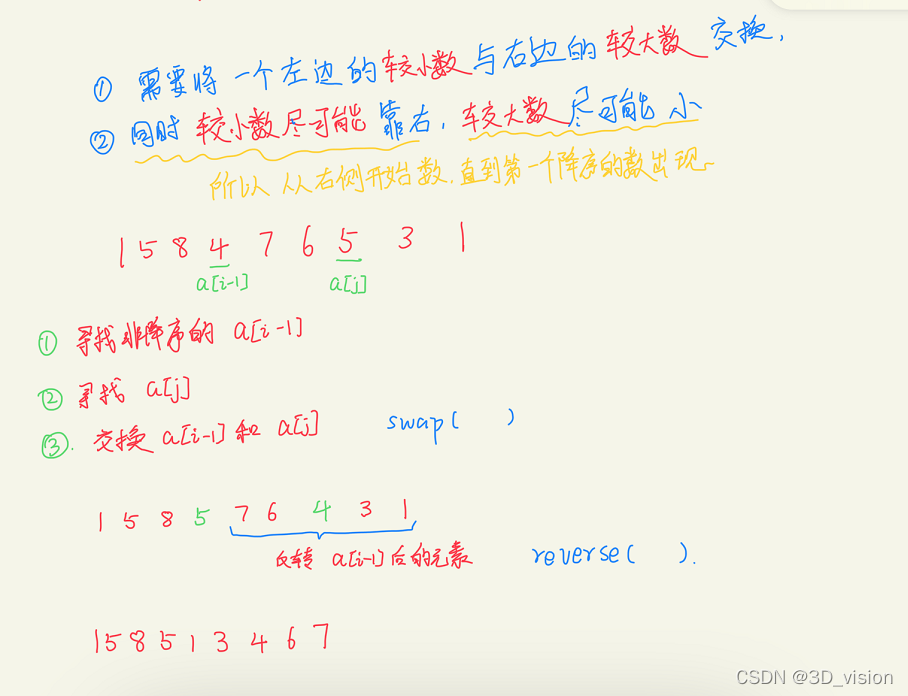 ① 需要将一个左边的较小数与右边的较大数交换,
② 同时较小数尽可能靠右, 较大数尽可能小
所以从右侧开始数.直到第一个降序的数出现
1 5 8 4 7 6 5 3 1
a[i-1] a[j]
① 寻找非降序的 a[i-1]
② 寻找 a[j]
③. 交换 a[i-1] 和 a[j] swap( )
1 5 8 5 7 6 4 3 1
反转 a[i-1]后的元素 reverse( ).
1 5 8 5 1 3 4 6 7
CSDN @3D_vision